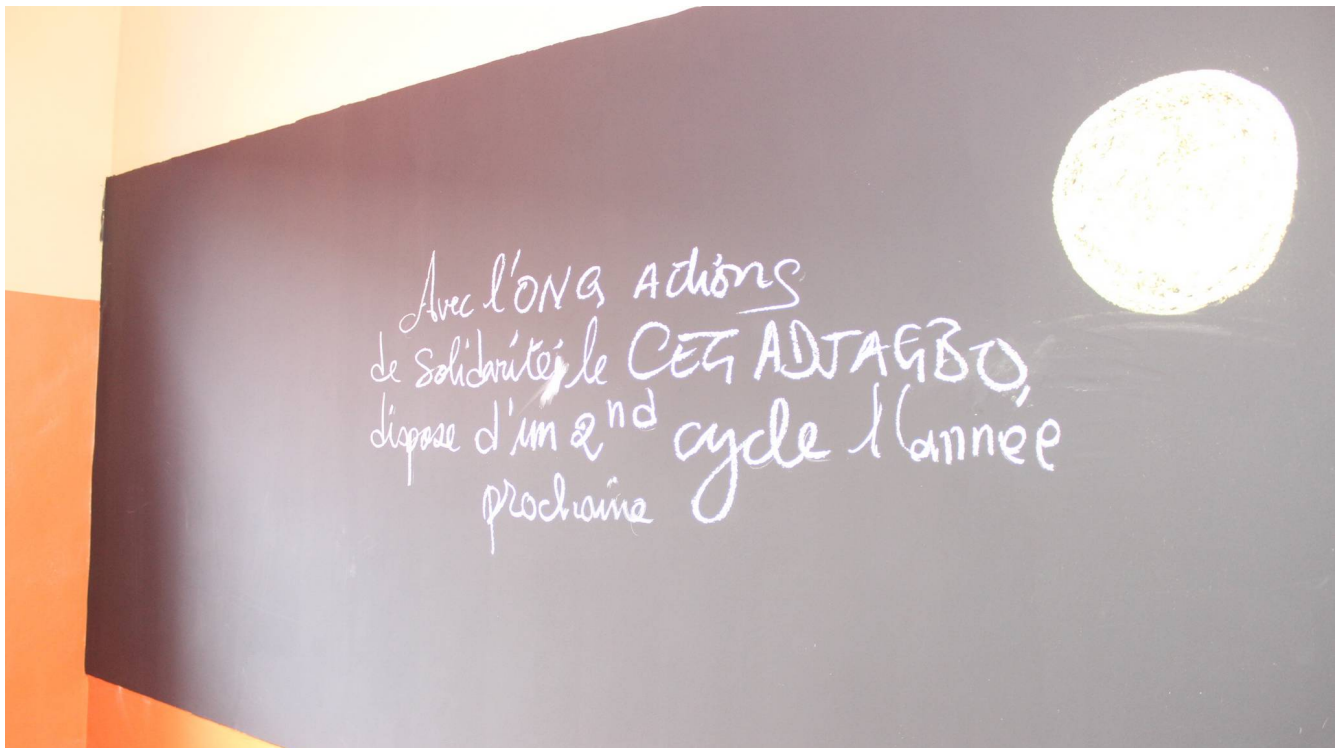 Avec l'ONG Actions
de Solidarité, le CEG ADJAGBO,
dispose d'un 2nd cycle l'année
prochaine